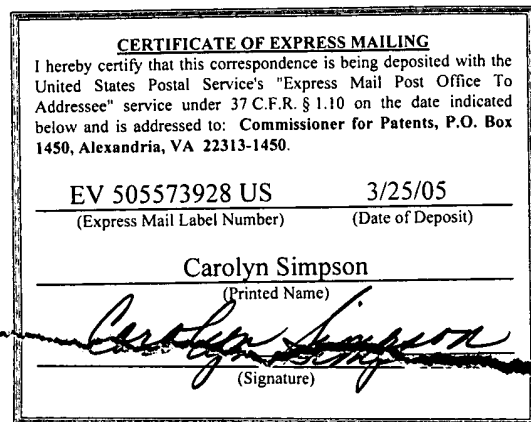 CERTIFICATE OF EXPRESS MAILING
I hereby certify that this correspondence is being deposited with the
United States Postal Service's "Express Mail Post Office To
Addressee" service under 37 C.F.R. § 1.10 on the date indicated
below and is addressed to: Commissioner for Patents, P.O. Box
1450, Alexandria, VA 22313-1450.
EV 505573928 US 3/25/05
(Express Mail Label Number) (Date of Deposit)
Carolyn Simpson
(Printed Name)
Carolyn Simpson
(Signature)